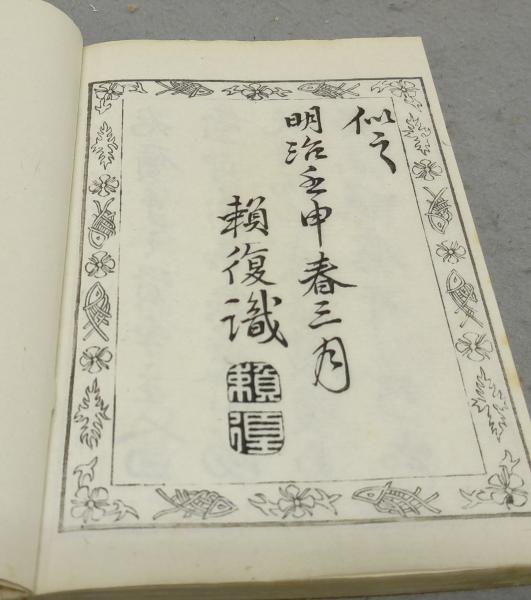 似之
明治壬申春三月
賴復識
賴復